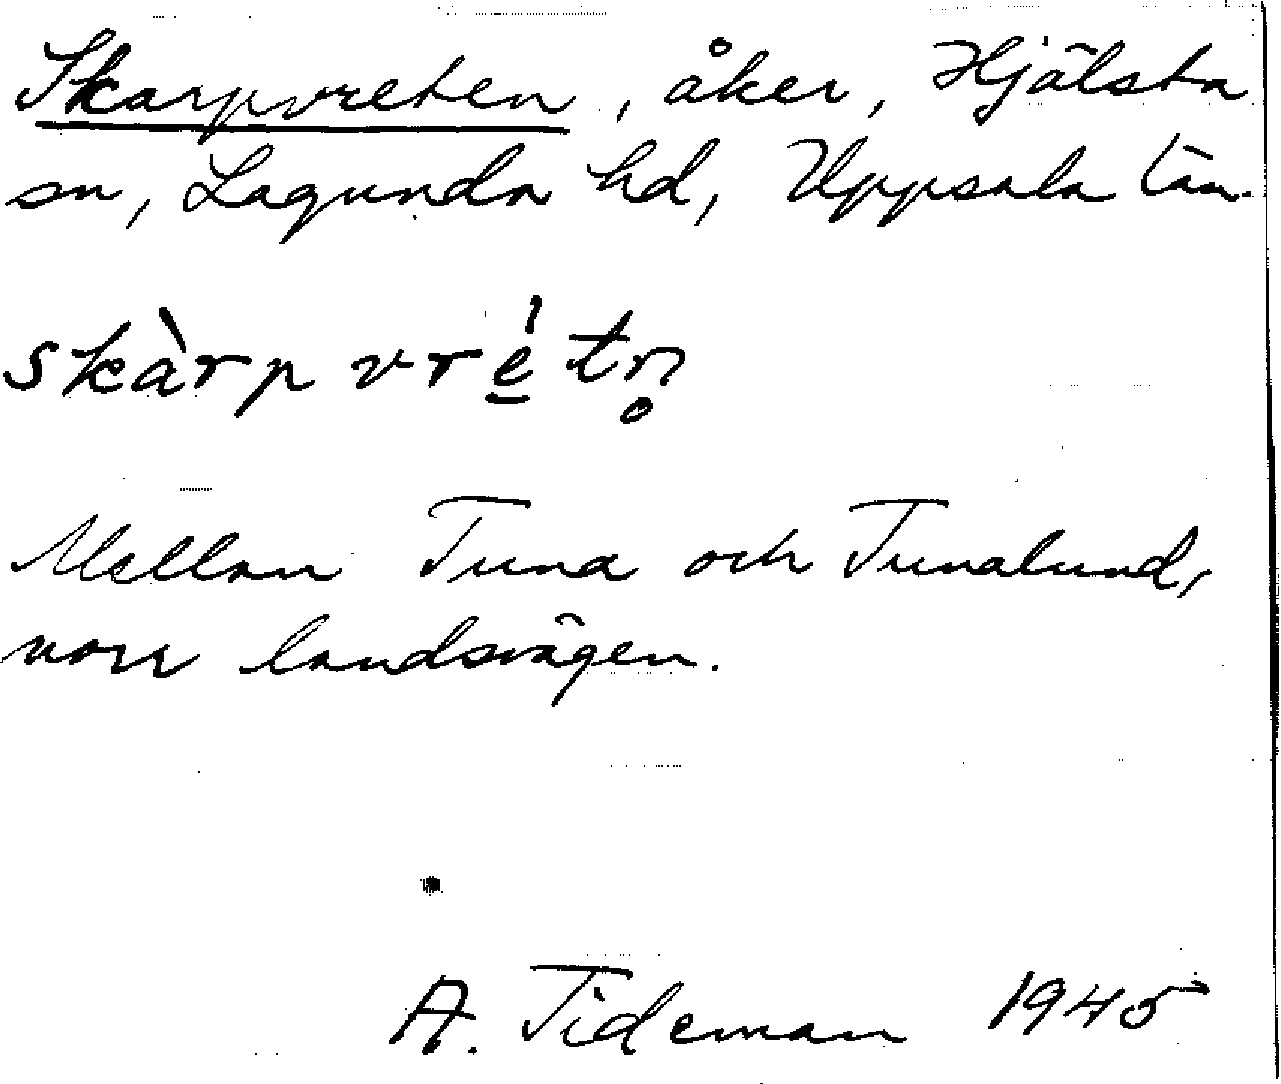 Skarpvreten, åker, Hjälsta
sn, Lagunda hd, Uppsala län.
skàrp vré̲tn̥
Mellan Tuna och Tunalund,
norr landsvägen.
A. Tideman 1945